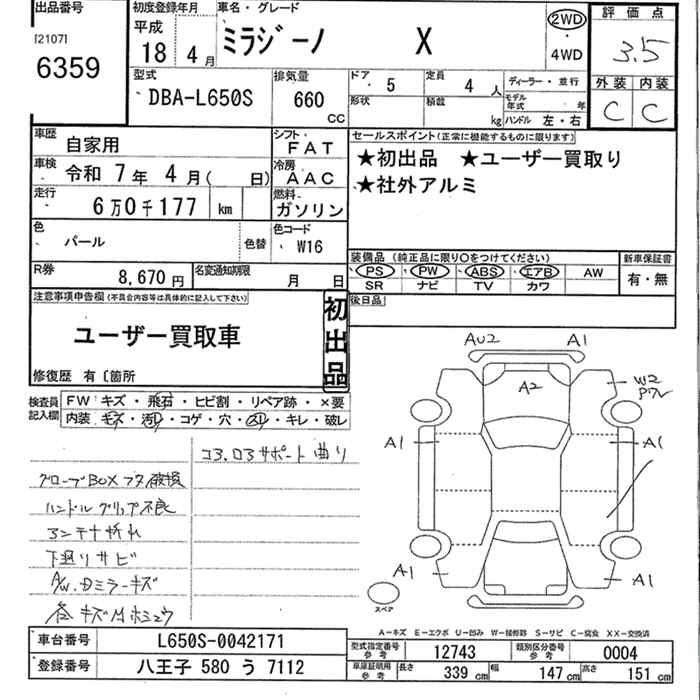 出品番号 初度登録年月 車名・グレード 評価点
[2107]
6359
平成
18年 4月
ミラジーノ X
2WD
・
4WD
3.5
外装 内装
C C
型式 排気量 ドア 5 定員 4人 ディーラー・並行
DBA-L650S 660 CC
形状 積載 kg モデル年式 年
ハンドル 左・右
車歴 自家用 シフト FAT
車検 令和 7年 4月( 日) 冷房 AAC
走行 6万0千177 km 燃料 ガソリン
セールスポイント(正常に機能するものに限ります)
★初出品 ★ユーザー買取り
★社外アルミ
色 パール 色替 色コード W16
装備品 (純正品に限り○をつけてください) 新車保証書
PS PW ABS エアB AW 有・無
SR ナビ TV カワ
R券 8,670円 名変通知期限 月 日
注意事項申告欄(不具合内容等は具体的に記入して下さい) 後日品
初出品
ユーザー買取車
修復歴 有 〔箇所
検査員記入欄 FW キズ・飛石・ヒビ割・リペア跡・×要
内装 キズ・汚レ・コゲ・穴・スレ・キレ・破レ
コ3.ロ3サポート曲り
グローブBOXフタ破損
ハンドルグリップ不良
アンテナ折れ
下廻りサビ
A/W.Dミラーキズ
AU2 A1
A2
W2
A1 A1
A1 A1
スペア
A-キズ E-エクボ U-凹み W-補修跡 S-サビ C-腐食 XX-交換済
車台番号 L650S-0042171
型式指定番号 参考 12743 類別区分番号 参考 0004
登録番号 八王子 580 う 7112
車庫証明用 参考 長さ 339 cm 幅 147 cm 高さ 151 cm